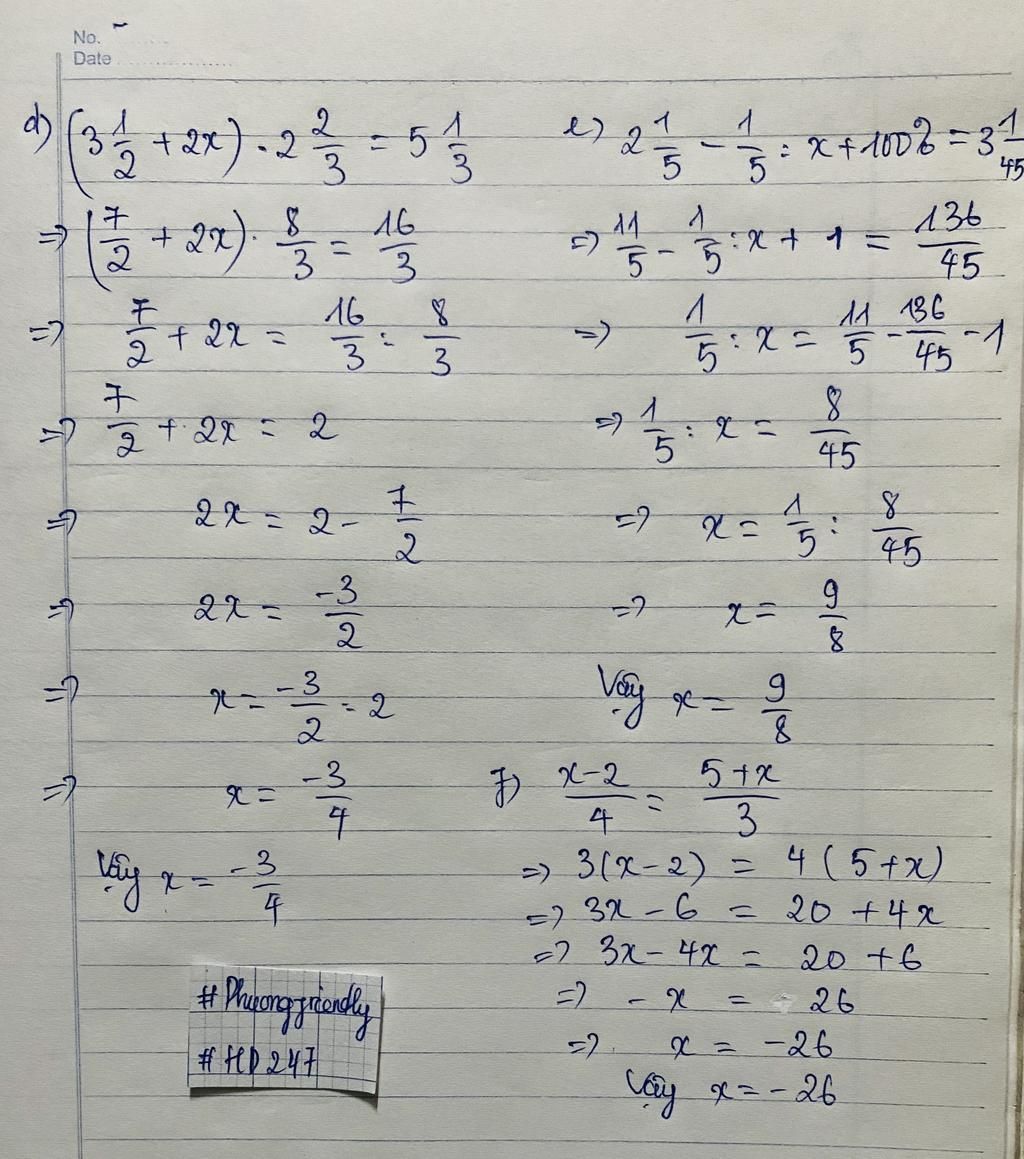 No.
Date
d) (3 1/2 + 2x) . 2 2/3 = 5 1/3
=> (7/2 + 2x) . 8/3 = 16/3
=> 7/2 + 2x = 16/3 : 8/3
=> 7/2 + 2x = 2
=> 2x = 2 - 7/2
=> 2x = -3/2
=> x = -3/2 : 2
=> x = -3/4
Vậy x = -3/4
#Phuongfriendly
#HD247
e) 2 1/5 - 1/5 : x + 100% = 3 1/45
=> 11/5 - 1/5 : x + 1 = 136/45
=> 1/5 : x = 11/5 - 136/45 - 1
=> 1/5 : x = 8/45
=> x = 1/5 : 8/45
=> x = 9/8
Vậy x = 9/8
f) x-2/4 = 5+x/3
=> 3(x-2) = 4(5+x)
=> 3x - 6 = 20 + 4x
=> 3x - 4x = 20 + 6
=> - x = 26
=> x = -26
Vậy x = -26